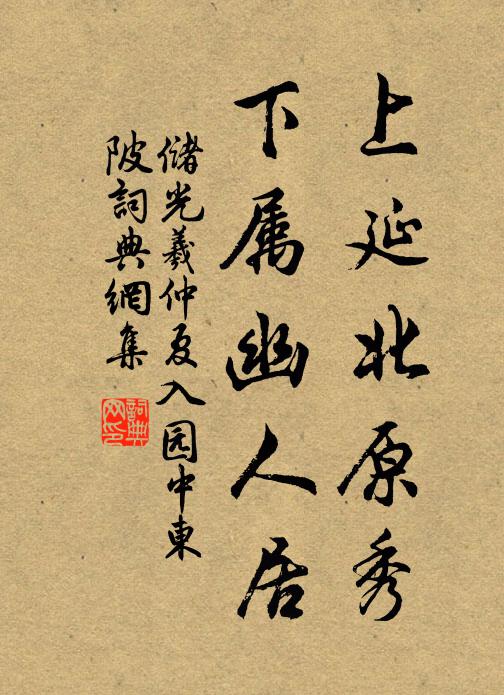 上延北原秀
下属幽人居
储光羲仲夏入园中東
陂詞典網集
詞典网印